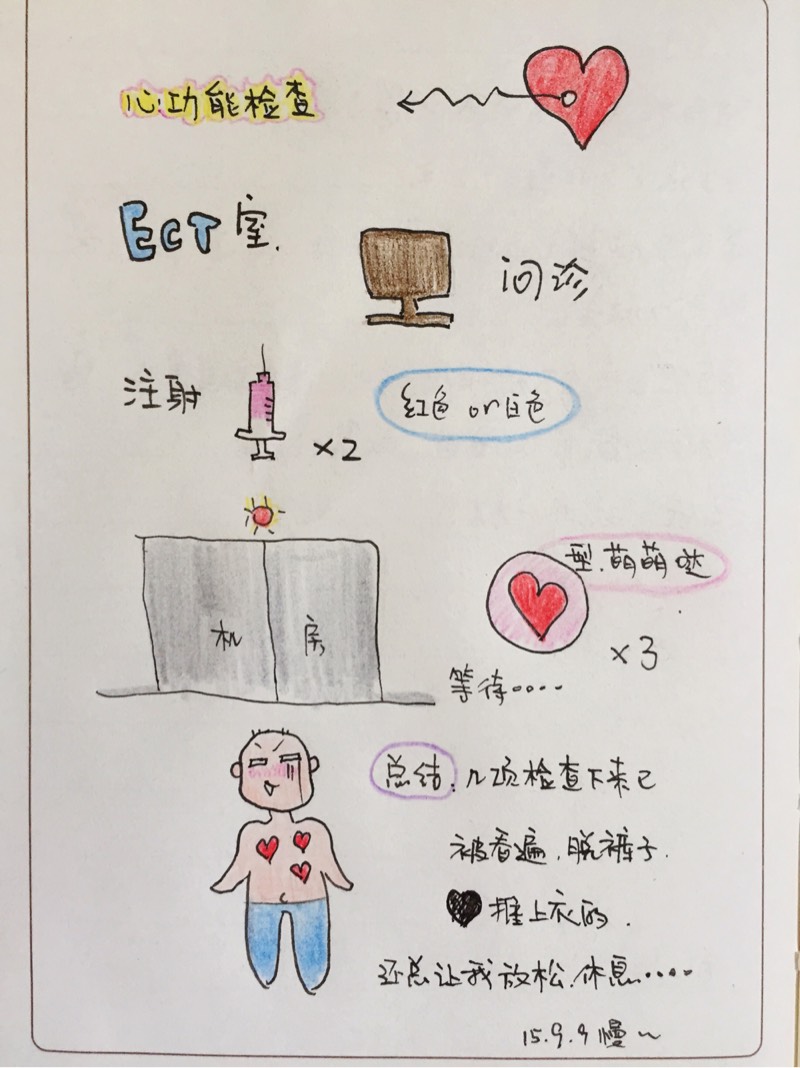 心功能检查
ECT室.
问诊
注射
×2
红色 or 白色
机房
型.萌萌哒
×3
等待····
总结:几项检查下来已
被看遍.脱裤子.
推上衣的.
还总让我放松.休息····
15.9.9 慢~